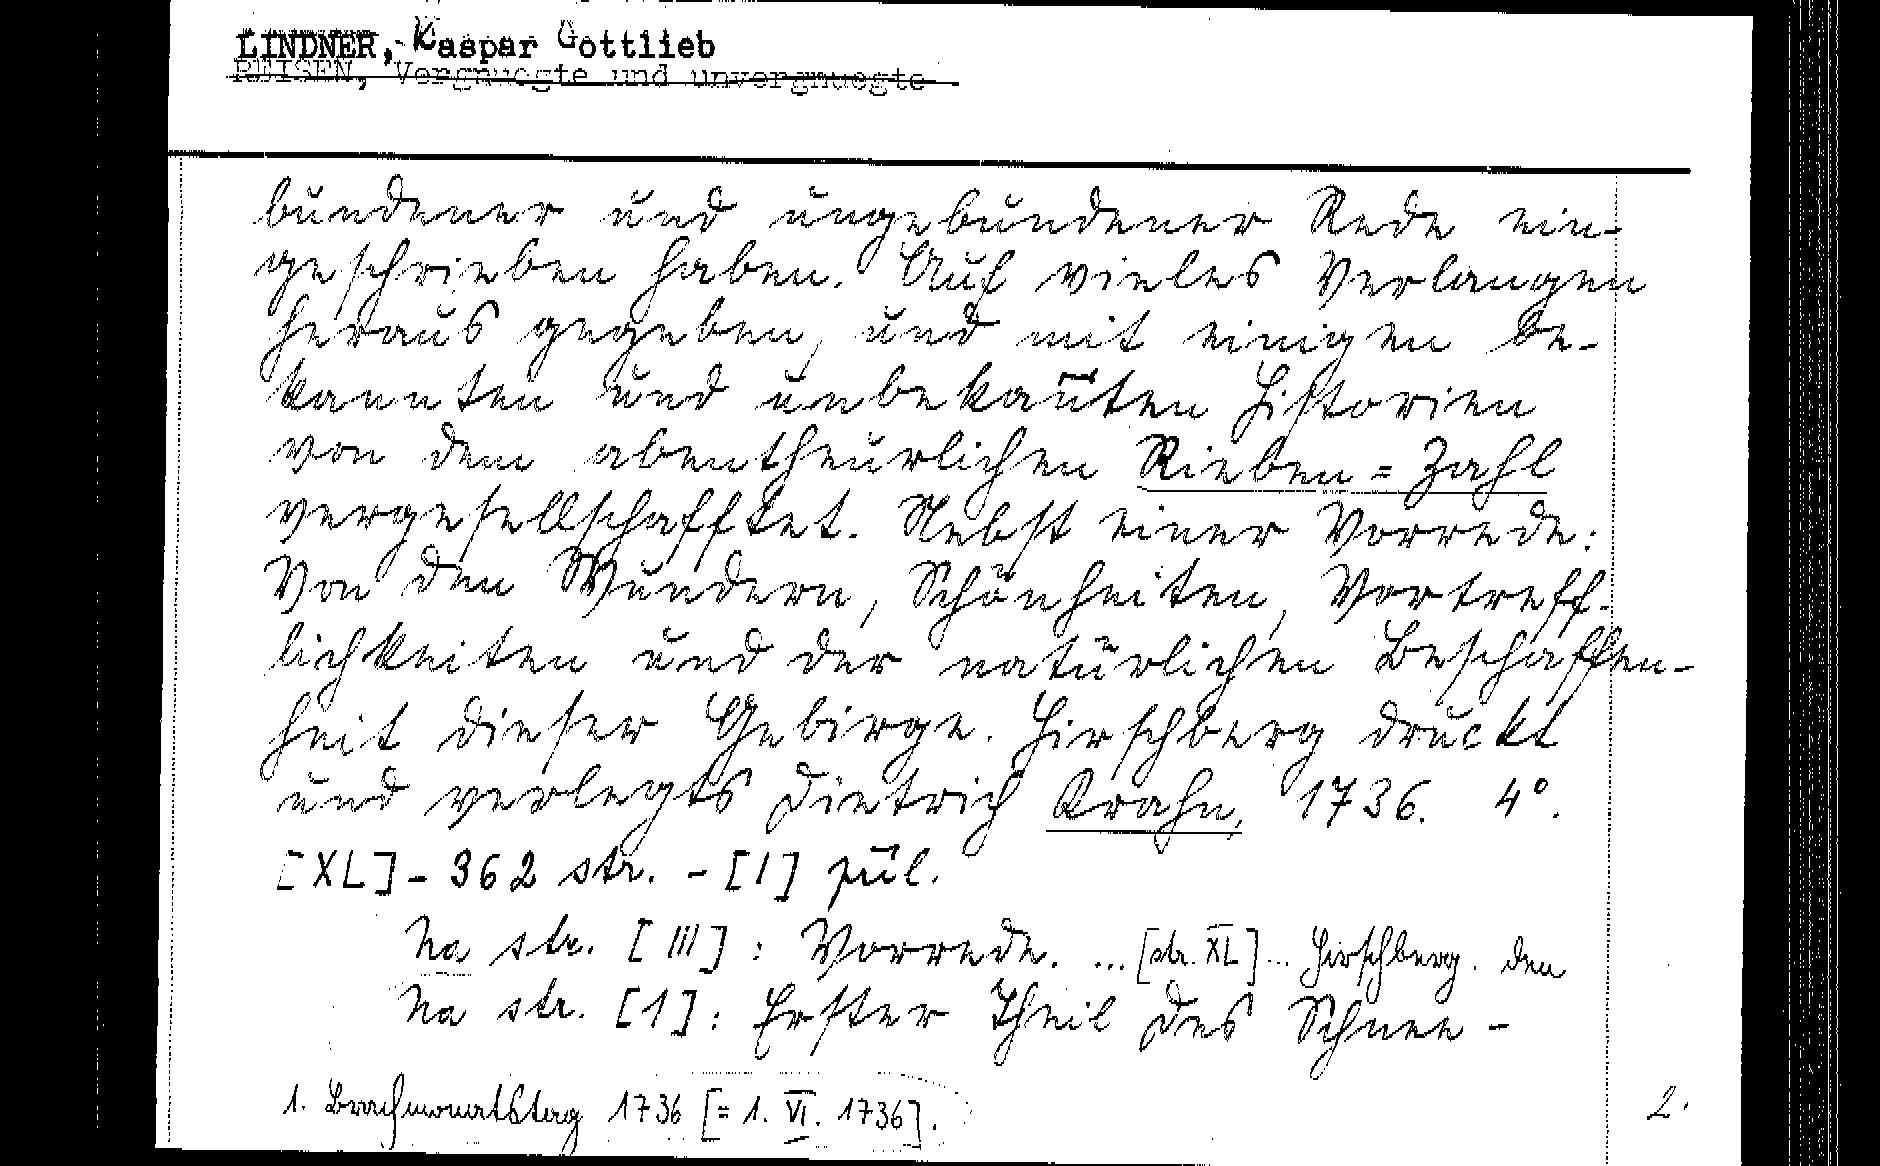 LINDNER, Kaspar Gottlieb
REISEN, Vergnuegte und unvergnuegte
bundener und ungebundener Rede ein-
geschrieben haben. Auf vieles Verlangen
heraus gegeben, und mit einigen be-
kannten und unbekañten Historien
von dem abentheurlichen Rieben=Zahl
vergesellschafftet. Nebst einer Vorrede:
Von den Wundern, Schönheiten, Vortreff-
lichkeiten und der natürlichen Beschaffen-
heit dieser Gebirge. Hirschberg druckt
und verlegts Dietrich Krahn, 1736. 4°.
[XL] - 362 str. - [1]
Na str. [III] : Vorrede. ... [str. XL] ... Hirschberg. den
Na str. [1] : Erster Theil des Schnee-
1. Brachmonatstag 1736 [= 1. VI. 1736].
2.